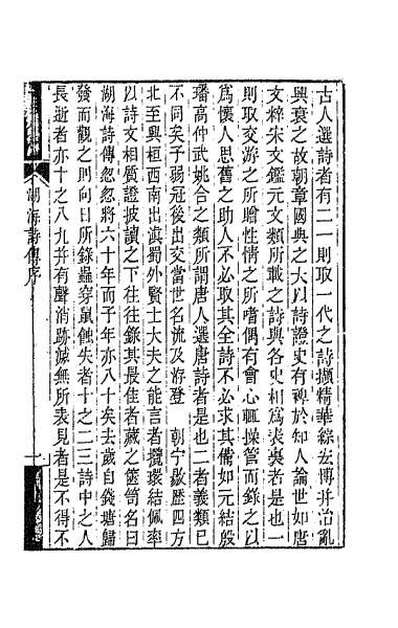 古人選詩者有二一則取一代之詩擷精華綜宏博并治亂
興衰之故朝章國典之大以詩證史有裨於知人論世如唐
文粹宋文鑑元文類所載之詩與各史相爲表裏者是也一
則取交游之所贈性情之所嗜偶有會心輒操管而錄之以
爲懷人思舊之助人不必取其全詩不必求其備如元結殷
璠高仲武姚合之類所謂唐人選唐詩者是也二者義類已
不同矣予弱冠後出交當世名流及洊登 朝宁敭歷四方
北至興桓西南出滇蜀外賢士大夫之能言者攬環結佩率
以詩文相質證披讀之下往往錄其最佳者藏之篋笥名曰
湖海詩傳忽忽將六十年而予年亦八十矣去歲自錢塘歸
發而觀之則向日所錄蟲穿鼠蝕失者十之二三詩中之人
長逝者亦十之八九并有聲消跡滅無所表見者是不得不
湖海詩傳序
一